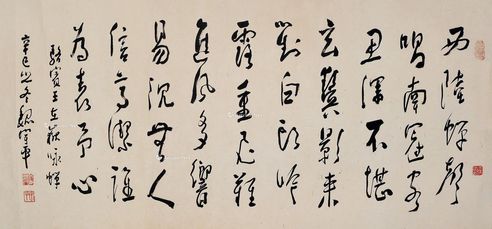 西陸蟬聲
唱南冠客
思深不堪
玄鬢影來
對白頭吟
露重飛難
進風多響
易沉無人
信高潔誰
為表予心
駱賓王在獄咏蟬
辛巳之冬魏